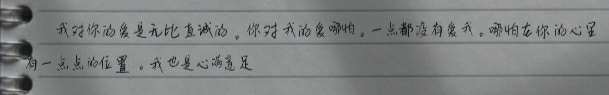 我对你的爱是无比真诚的。你对我的爱哪怕。一点都没有爱我。哪怕在你的心里
有一点点的位置。我也是心满意足